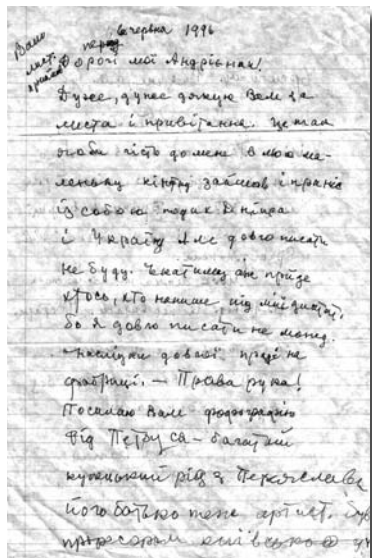 6 червня 1996
Ваш лист
Дорогі мої Андрійчак!
Дуже, дуже дякую Вам за
листа і привітання. Це так
якби гість до мене в мою ма-
леньку кімнату зайшов і приніс
із собою подих Дніпра
і Україну Але довго писати
не буду. Чекатиму аж прийде
хтось, хто напише під мій диктат,
бо я довго писати не можу.
наслідки довгої праці на
фабриці. — Права рука!
Посилаю Вам фотографію
Від Петруся — багатий
рід з Переяслава
його батько теж артист, був
професором київського